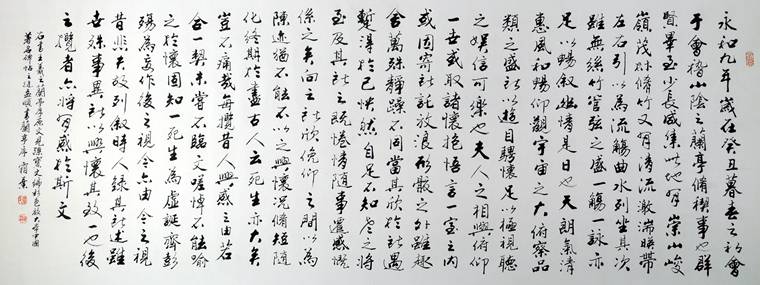 永和九年歲在癸丑暮春之初會
于會稽山陰之蘭亭脩禊事也群
賢畢至少長咸集此地有崇山峻
嶺茂林脩竹又有清流激湍映帶
左右引以為流觴曲水列坐其次
雖無絲竹管弦之盛一觴一詠亦
足以暢敘幽情是日也天朗氣清
惠風和暢仰觀宇宙之大俯察品
類之盛所以遊目騁懷足以極視聽
之娛信可樂也夫人之相與俯仰
一世或取諸懷抱悟言一室之內
或因寄所託放浪形骸之外雖趣
舍萬殊靜躁不同當其欣於所遇
暫得於己快然自足不知老之將
至及其所之既惓情隨事遷感慨
係之矣向之所欣俛仰之間以為
陳迹猶不能不以之興懷況脩短隨
化終期於盡古人云死生亦大矣
豈不痛哉每攬昔人興感之由若
合一契未嘗不臨文嗟悼不能喻
之於懷固知一死生為虛誕齊彭
殤為妄作後之視今亦由今之視
昔悲夫故列敘時人錄其所述雖
世殊事異所以興懷其致一也後
之攬者亦將有感於斯文
右書王羲之蘭亭序原文